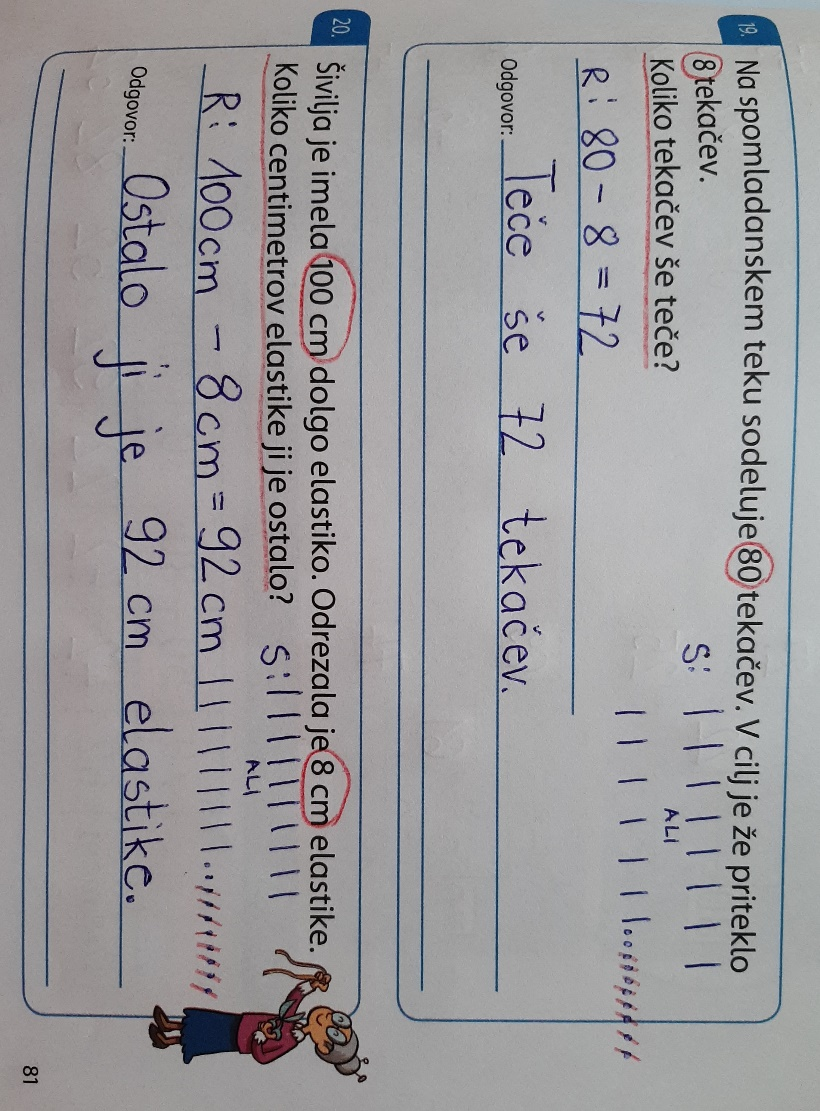 19.
Na spomladanskem teku sodeluje 80 tekačev. V cilj je že priteklo
8 tekačev.
Koliko tekačev še teče?
S:
ALI
R: 80 - 8 = 72
Odgovor: Teče še 72 tekačev.
20.
Šivilja je imela 100 cm dolgo elastiko. Odrezala je 8 cm elastike.
Koliko centimetrov elastike ji je ostalo?
S:
ALI
R: 100 cm - 8 cm = 92 cm
Odgovor: Ostalo ji je 92 cm elastike.
81